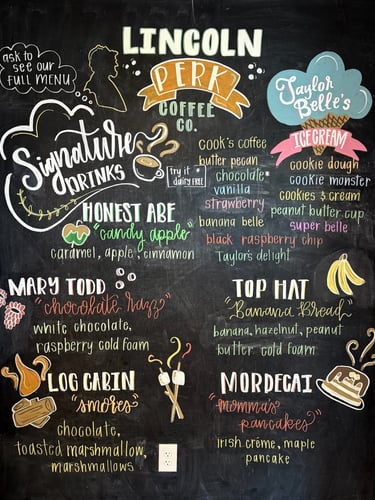 ask to
see our
FULL MENU
LINCOLN
PERK
COFFEE
CO.
Taylor
Belle's
ICE CREAM
Signature
DRINKS
try it
dairy FREE
Cook's coffee
butter pecan
chocolate*
vanilla
strawberry
banana belle
black raspberry chip
Taylor's delight
cookie dough
cookie monster
cookies & cream
peanut butter cup
super belle
HONEST ABE
"candy apple"
caramel, apple, cinnamon
MARY TODD
"chocolate razz"
white chocolate,
raspberry cold foam
TOP HAT
"Banana Bread"
banana, hazelnut, peanut
butter cold foam
LOG CABIN
"smores"
chocolate,
toasted marshmallow,
marshmallows
MORDECAI
"momma's
pancakes"
Irish crème, maple
pancake